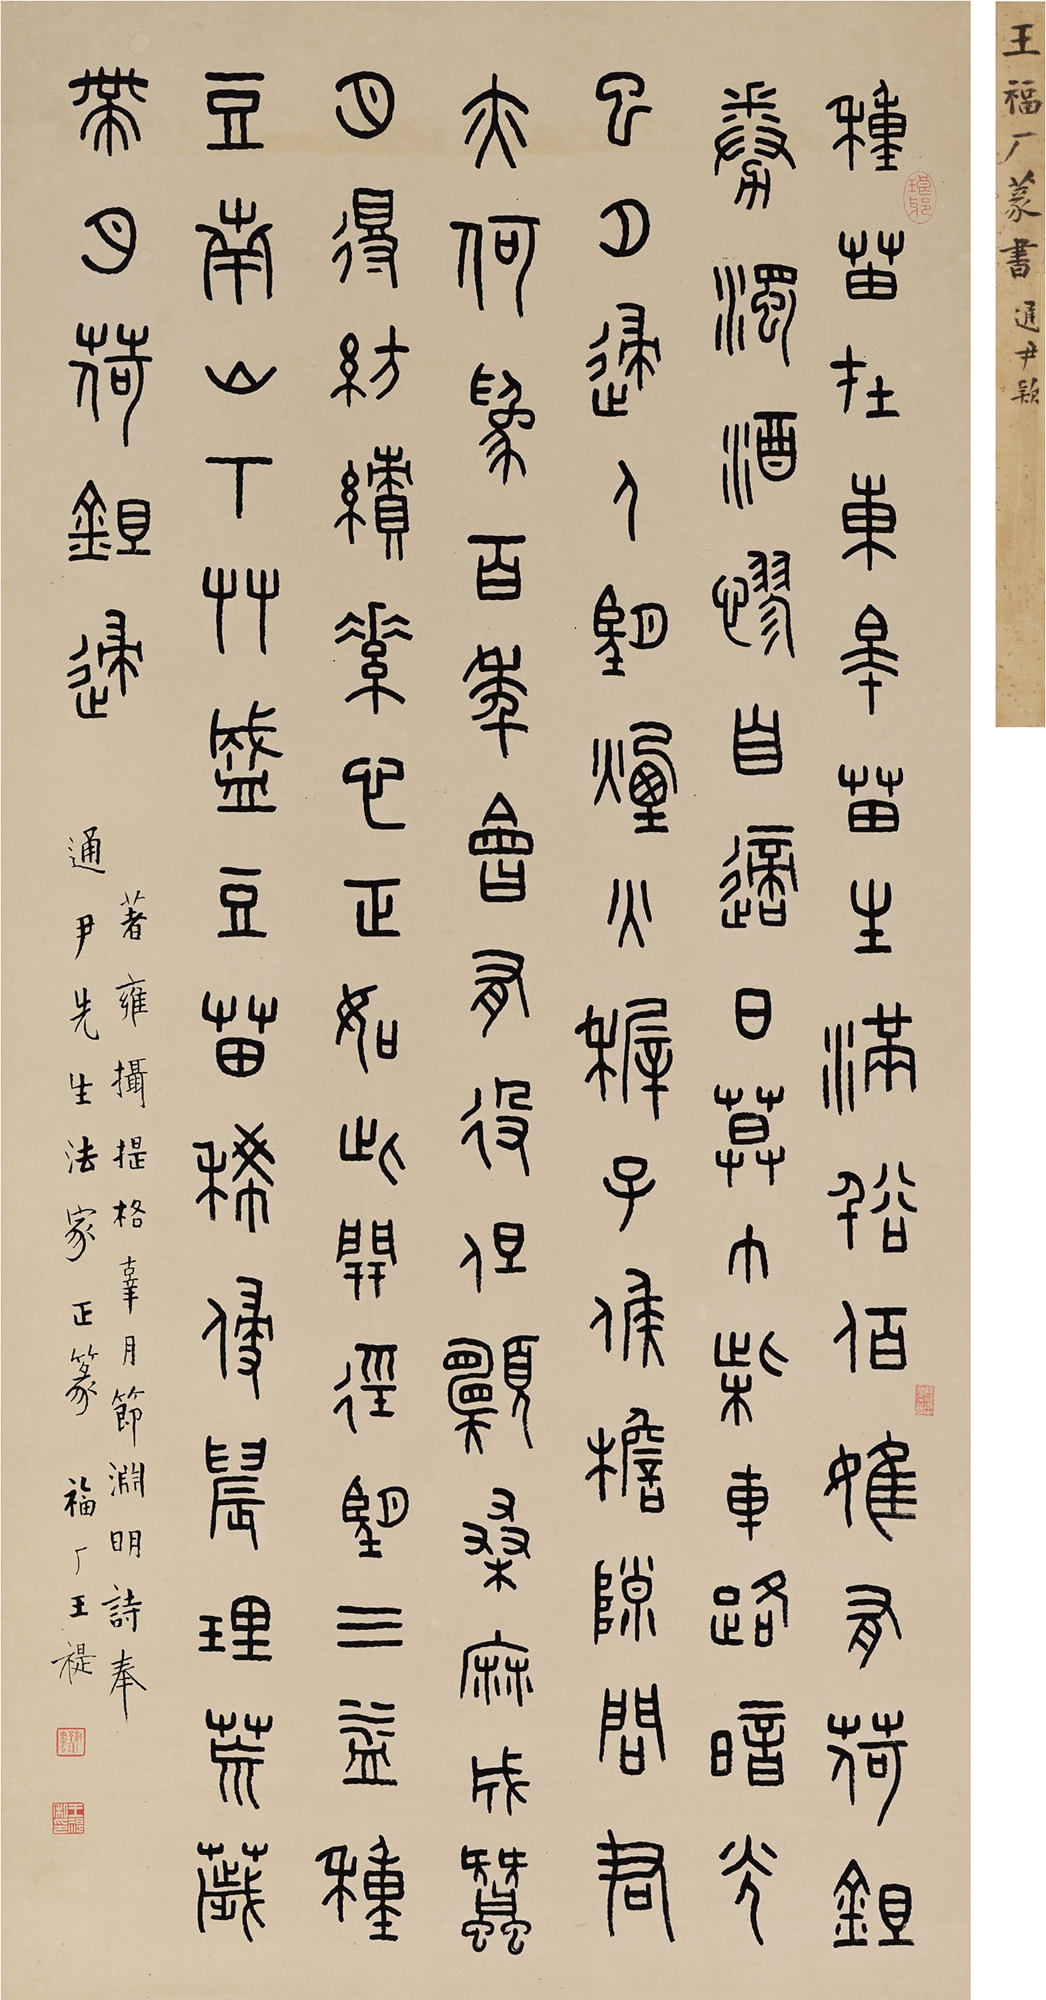 王福厂篆書 通尹款
種苗在東皋苗生滿谸佰雖有荷鉏
劵濁酒憀自適日莫巾柴車路暗光
已夕歸人望煙火稺子候檐隙問君
亦何為百年會有役但願桑麻成蠶
月得紡績素心正如此開徑望三益種
豆南山下艸盛豆苗稀侵晨理荒薉
帶月荷鉏歸
著雍攝提格辜月節淵明詩奉
通尹先生法家正篆 福厂王禔